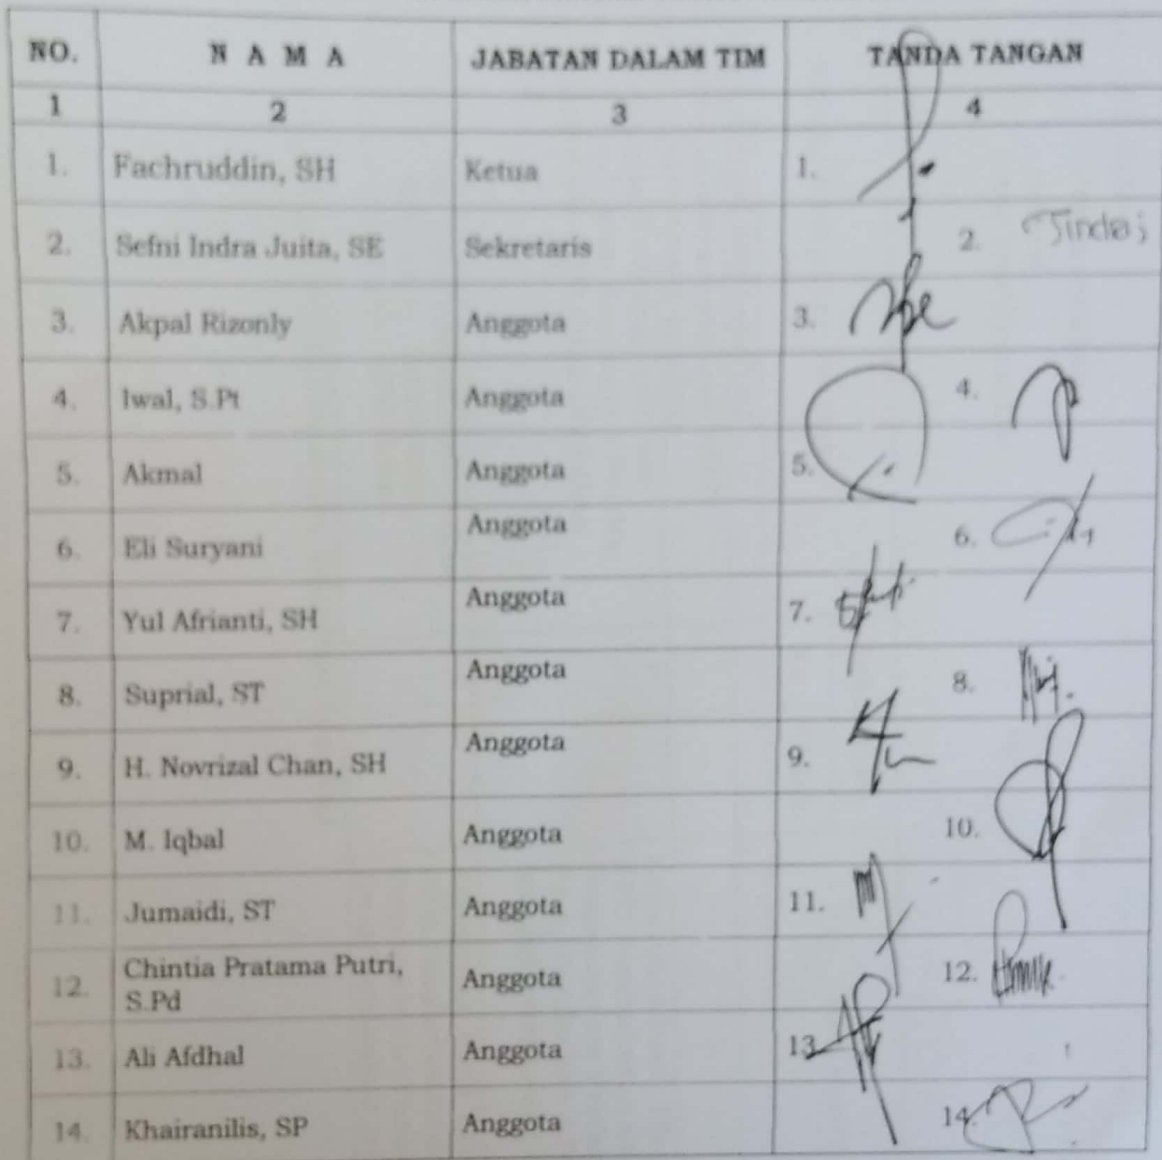 NO. N A M A JABATAN DALAM TIM TANDA TANGAN
1 2 3 4
1. Fachruddin, SH Ketua 1.
2. Sefni Indra Juita, SE Sekretaris 2.
3. Akpal Rizonly Anggota 3.
4. Iwal, S.Pt Anggota 4.
5. Akmal Anggota 5.
6. Eli Suryani Anggota 6.
7. Yul Afrianti, SH Anggota 7.
8. Suprial, ST Anggota 8.
9. H. Novrizal Chan, SH Anggota 9.
10. M. Iqbal Anggota 10.
11. Jumaidi, ST Anggota 11.
12. Chintia Pratama Putri, Anggota 12.
S.Pd
13. Ali Afdhal Anggota 13.
14. Khairanilis, SP Anggota 14.